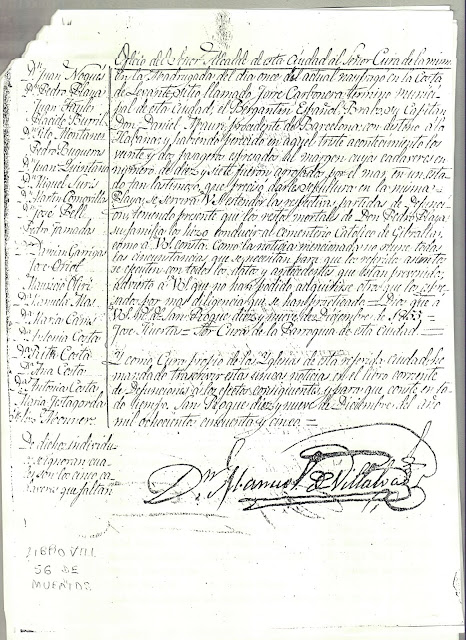 Oficio del Señor Alcalde de esta Ciudad al Señor Cura de la misma
En la Madrugada del dia once del actual naufragó en la Costa
de Levante, sitio llamado Torre Carbonera termino munici-
pal de esta ciudad, el Bergantin Español, Brabo, su Capitan
Don Daniel procedente de Barcelona con destino a la
Habana; y habiendo perecido en aquel triste acontecimiento los
veinte y dos pasageros espresados al margen cuyos cadaveres en
numero de diez y siete fueron arrojados por el mar, en un esta-
do tan lastimoso, que preciso darles sepultura en la misma
Playa; se servirá V. estender las respectivas partidas de Defuncion
teniendo presente que los restos mortales de Don Pedro Playa
su familia los hizo conducir al Cementerio Catolico de Gibraltar,
como a V. le consta. Como la noticia mencionada no reune todas
las circunstancias que se necesitan para que los referidos asientos
se ejecuten con todos los datos y antecedentes que estan prevenidos,
advierto a V. que no han podido adquirirse otros que los espre-
sados por mas diligencias que se han practicado = Dios gue. a
V. ms. as. San Roque diez y nueve de Diciembre de 1855 =
Jose Huertas = Sor. Cura de la Parroquia de esta ciudad =
Y como Cura propio de la Yglesia de esta referida ciudad he
mandado trascribir estas unicas noticias en el libro corriente
de Defunciones a los efectos consiguientes, y para que conste en to-
do tiempo. San Roque diez y nueve de Diciembre del año
mil ochocientos cincuenta y cinco. =
Dn. Manuel de Villalva
Dn. Juan Nogués
Dn. Pedro Playa
Juan
Placido Burull
Tito Montaner
Pedro Bugueras
Dn. Juan Quintana
Dn. Miguel Suris
Dn. Martin
Dn. Jose Bell
Pedro Famadas
Damian Garrigas
Jose Oriol
Mauricio
Da. Manuela Mas
Da. Maria Caris
Da. Antonia Costa
Da. Rita Costa
Da. Ana Costa
Da. Antonia Costa
Maria
De dichos individu-
os se ignoran cua-
les son los cinco ca-
daveres que faltan
LIBRO VIII
56 DE
MUERTOS